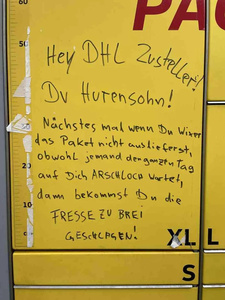 PAC
60
50
40
30
20
10
0
Hey DHL Zusteller!
Du Hurensohn!
Nächstes mal wenn Du Wixer
das Paket nicht auslieferst,
obwohl jemand den ganzen Tag
auf Dich ARSCHLOCH wartet,
dann bekommst Du die
FRESSE ZU BREI
GESCHLAGEN!
XL L
S